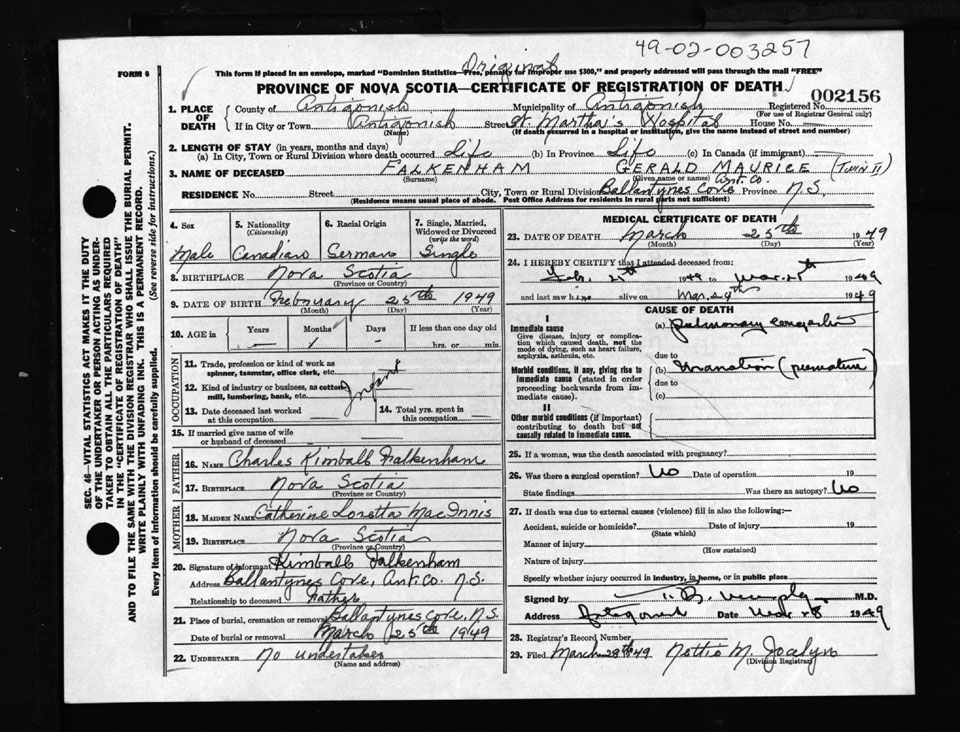 49-02-003257
Original
FORM 6
This form if placed in an envelope, marked "Dominion Statistics—Free, penalty for improper use $300," and properly addressed will pass through the mail "FREE"
PROVINCE OF NOVA SCOTIA—CERTIFICATE OF REGISTRATION OF DEATH
002156
1. PLACE OF DEATH
County of Antigonish Municipality of Antigonish Registered No.
(For use of Registrar General only)
If in City or Town Antigonish Street St. Martha's Hospital House No.
(Name) (If death occurred in a hospital or institution, give the name instead of street and number)
2. LENGTH OF STAY (in years, months and days)
(a) In City, Town or Rural Division where death occurred Life (b) In Province Life (c) In Canada (if immigrant)
3. NAME OF DECEASED FALKENHAM GERALD MAURICE (TWIN II)
(Surname) (Given name or names) Ant. Co.
RESIDENCE No. Street City, Town or Rural Division Ballantynes Cove Province N.S.
(Residence means usual place of abode. Post Office Address for residents in rural parts not sufficient)
SEC. 46—VITAL STATISTICS ACT MAKES IT THE DUTY
OF THE UNDERTAKER OR PERSON ACTING AS UNDER-
TAKER TO OBTAIN ALL THE PARTICULARS REQUIRED
IN THE "CERTIFICATE OF REGISTRATION OF DEATH"
AND TO FILE THE SAME WITH THE DIVISION REGISTRAR WHO SHALL ISSUE THE BURIAL PERMIT.
WRITE PLAINLY WITH UNFADING INK. THIS IS A PERMANENT RECORD.
Every item of information should be carefully supplied. (See reverse side for instructions.)
4. Sex
Male
5. Nationality
(Citizenship)
Canadian
6. Racial Origin
German
7. Single, Married,
Widowed or Divorced
(write the word)
Single
8. BIRTHPLACE Nova Scotia
(Province or Country)
9. DATE OF BIRTH February 25th 1949
(Month) (Day) (Year)
10. AGE in Years Months Days If less than one day old
— 1 — hrs. or min.
OCCUPATION
11. Trade, profession or kind of work as
spinner, teamster, office clerk, etc.
Infant
12. Kind of industry or business, as cotton
mill, lumbering, bank, etc.
13. Date deceased last worked
at this occupation
14. Total yrs. spent in
this occupation
15. If married give name of wife
or husband of deceased
FATHER
16. NAME Charles Kimball Falkenham
17. BIRTHPLACE Nova Scotia
(Province or Country)
MOTHER
18. MAIDEN NAME Catherine Loretta MacInnis
19. BIRTHPLACE Nova Scotia
(Province or Country)
20. Signature of informant Kimball Falkenham
Address Ballantynes Cove, Ant. Co. N.S.
Relationship to deceased Father
21. Place of burial, cremation or removal Ballantynes Cove, N.S.
Date of burial or removal March 25th 1949
22. UNDERTAKER No undertaker
(Name and address)
MEDICAL CERTIFICATE OF DEATH
23. DATE OF DEATH March 25th 1949
(Month) (Day) (Year)
24. I HEREBY CERTIFY that I attended deceased from:
Feb. 1949 to Mar. 1949
and last saw h im alive on Mar. 24th 1949
CAUSE OF DEATH
I
Immediate cause
Give disease, injury or complica-
tion which caused death, not the
mode of dying, such as heart failure,
asphyxia, asthenia, etc.
(a) pulmonary congestion
due to
Morbid conditions, if any, giving rise to
immediate cause (stated in order
proceeding backwards from im-
mediate cause).
(b) Inanation (premature)
due to
(c)
II
Other morbid conditions (if important)
contributing to death but not
causally related to immediate cause.
25. If a woman, was the death associated with pregnancy?
26. Was there a surgical operation? No Date of operation 19
State findings Was there an autopsy? No
27. If death was due to external causes (violence) fill in also the following:
Accident, suicide or homicide? Date of injury 19
(State which)
Manner of injury
(How sustained)
Nature of injury
Specify whether injury occurred in industry, in home, or in public place
Signed by Murphy M.D.
Address Antigonish Date Mar 28 1949
28. Registrar's Record Number
29. Filed March 28th 1949 Nettie M. Jocelyn
(Division Registrar)